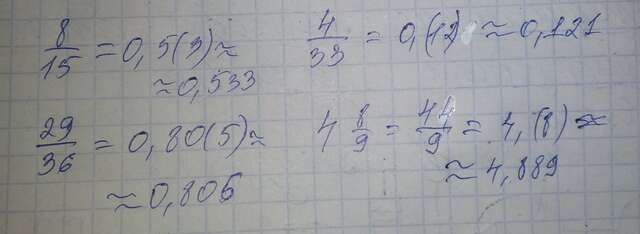 8/15 = 0,5(3) ≈
≈ 0,533
4/33 = 0,(12) ≈ 0,121
29/36 = 0,80(5) ≈
≈ 0,806
4 8/9 = 44/9 = 4,(8) ≈
≈ 4,889